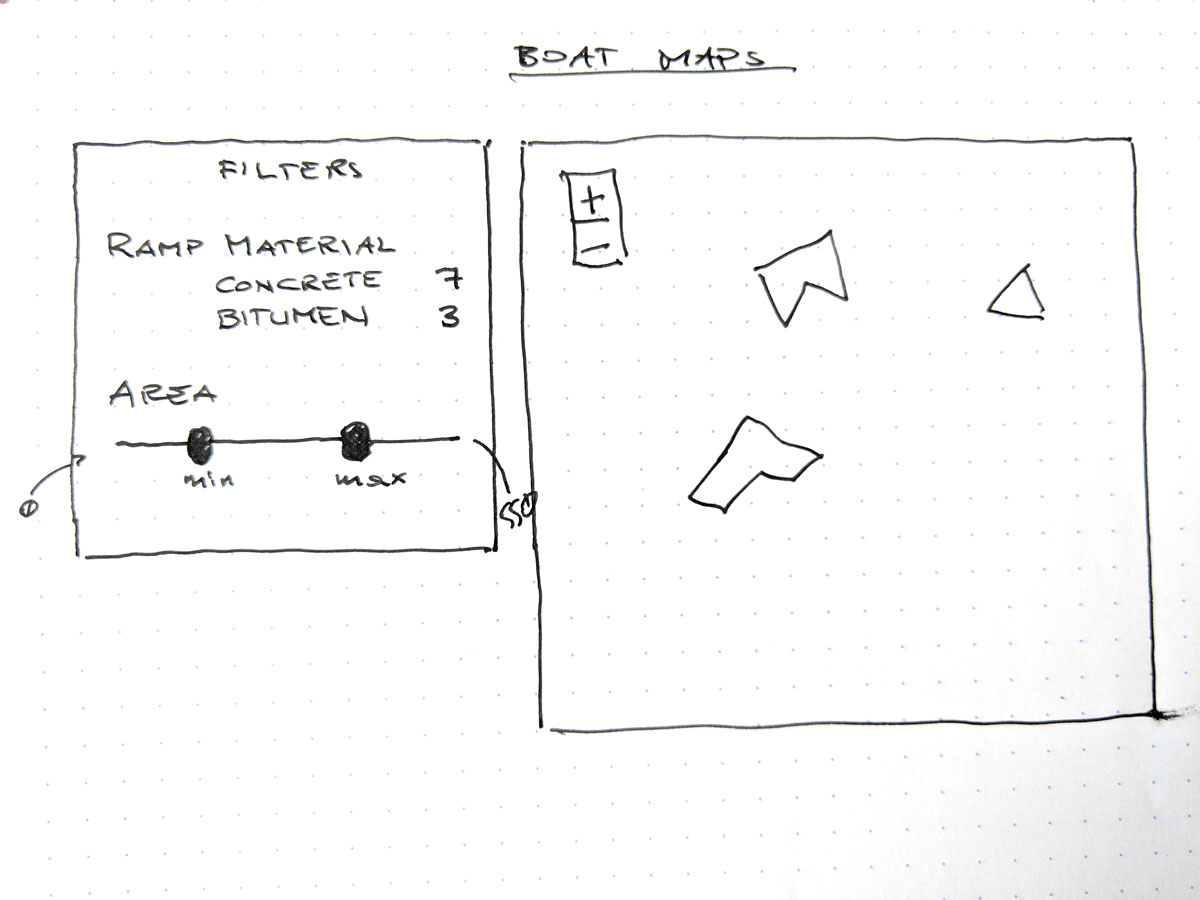 BOAT MAPS
FILTERS
RAMP MATERIAL
CONCRETE 7
BITUMEN 3
AREA
min max
0
550
+
-